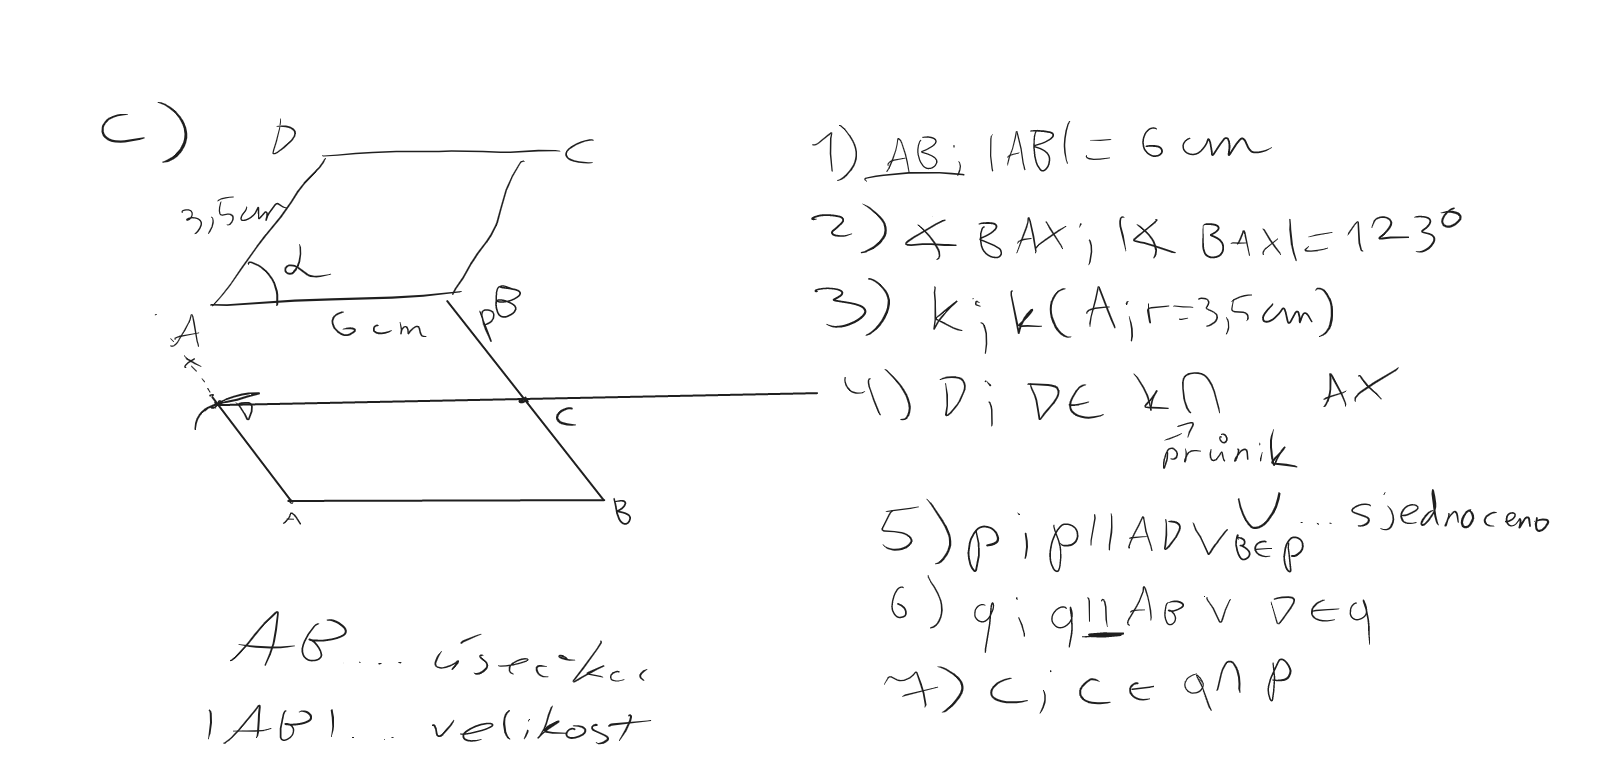 c)
D
C
3,5cm
α
A
6 cm
B
p
x
D
C
A
B
AB ... úsečka
|AB| ... velikost
1) AB; |AB| = 6 cm
2) ∢ BAX; |∢ BAX| = 123°
3) k; k(A; r=3,5 cm)
4) D; D∈ k∩ AX
→
průnik
5) p; p||AD ∨ B∈p
∪ ... sjednoceno
6) q; q||AB ∨ D∈q
7) C; C∈ q∩p